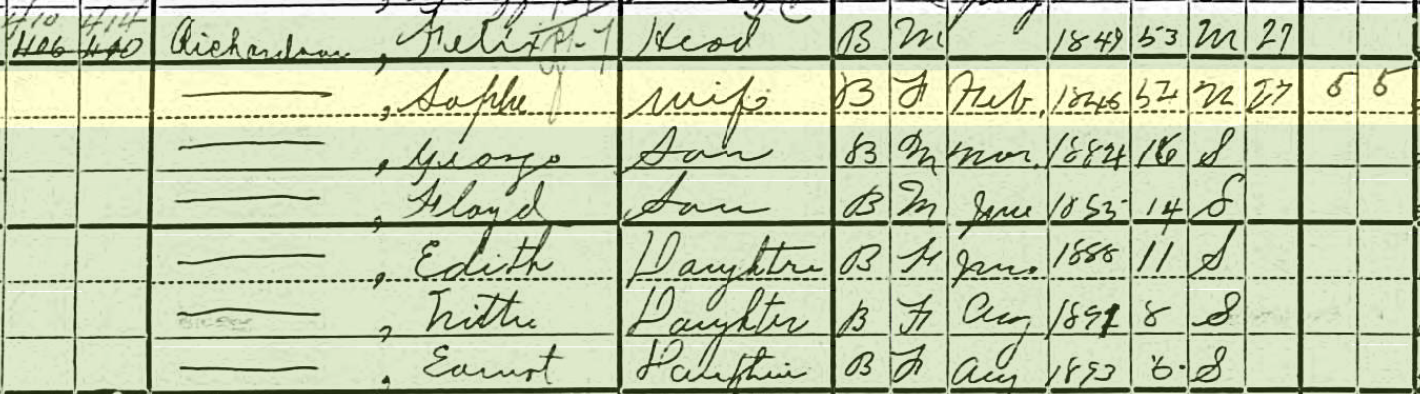 410 414
406 410 Richardson, Felix Head B M 1849 53 M 27
—, Sophe Wife B F Feb. 1846 54 M 27 5 5
—, George Son B M Mar. 1884 16 S
—, Floyd Son B M June 1885 14 S
—, Edith Daughter B F Jan. 1888 11 S
—, B F Aug 1891 8 S
—, Earnst Daughter B F Aug 1893 6 S